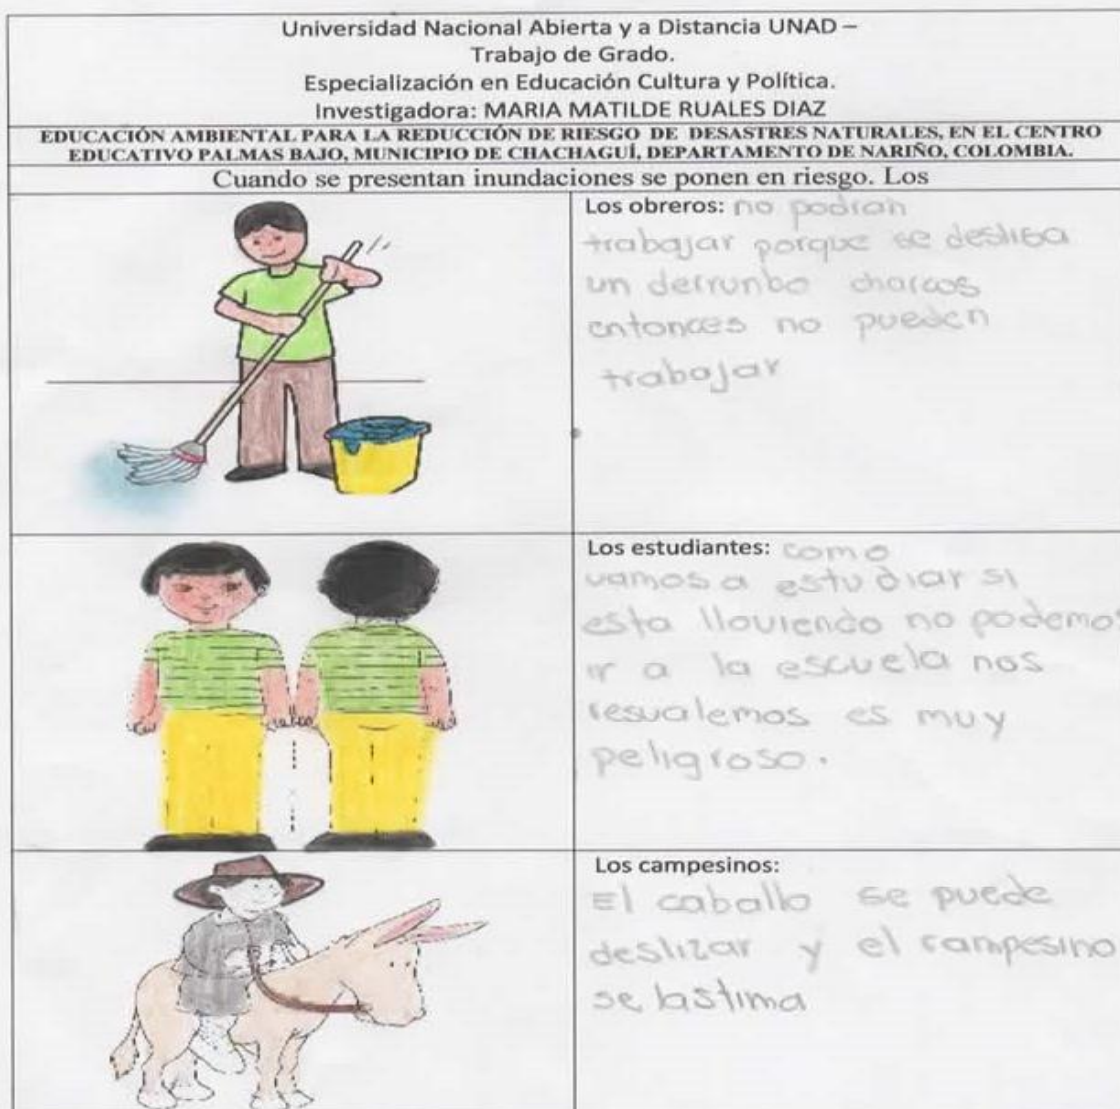 Universidad Nacional Abierta y a Distancia UNAD –
Trabajo de Grado.
Especialización en Educación Cultura y Política.
Investigadora: MARIA MATILDE RUALES DIAZ
EDUCACIÓN AMBIENTAL PARA LA REDUCCIÓN DE RIESGO DE DESASTRES NATURALES, EN EL CENTRO
EDUCATIVO PALMAS BAJO, MUNICIPIO DE CHACHAGUÍ, DEPARTAMENTO DE NARIÑO, COLOMBIA.
Cuando se presentan inundaciones se ponen en riesgo. Los
Los obreros: no podran
trabajar porque se deslisa
un derrunbo charcos
entonces no pueden
trabajar
Los estudiantes: como
vamos a estudiar si
esta lloviendo no podemos
ir a la escuela nos
resvalemos es muy
peligroso.
Los campesinos:
El caballo se puede
deslizar y el campesino
se lastima